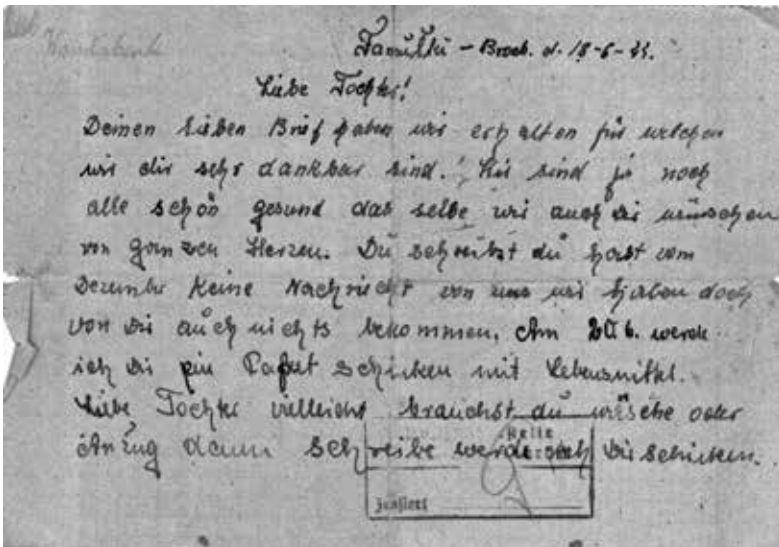 Tamulki - Broch. d. 18-6-44.
Liebe Tochter!
Deinen lieben Brief haben wir erhalten für welchen
wir dir sehr dankbar sind. Wir sind ja noch
alle schön gesund das selbe wir auch dir wünschen
von ganzen Herzen. Du schreibst du hast vom
Dezember keine Nachricht von uns wir haben doch
von dir auch nichts bekommen, Am 20 6. werde
ich dir ein Paket schicken mit Lebensmittel.
Liebe Tochter vielleicht brauchst du wäsche oder
Anzug dann schreibe werde ich dir schicken.
Zensiert